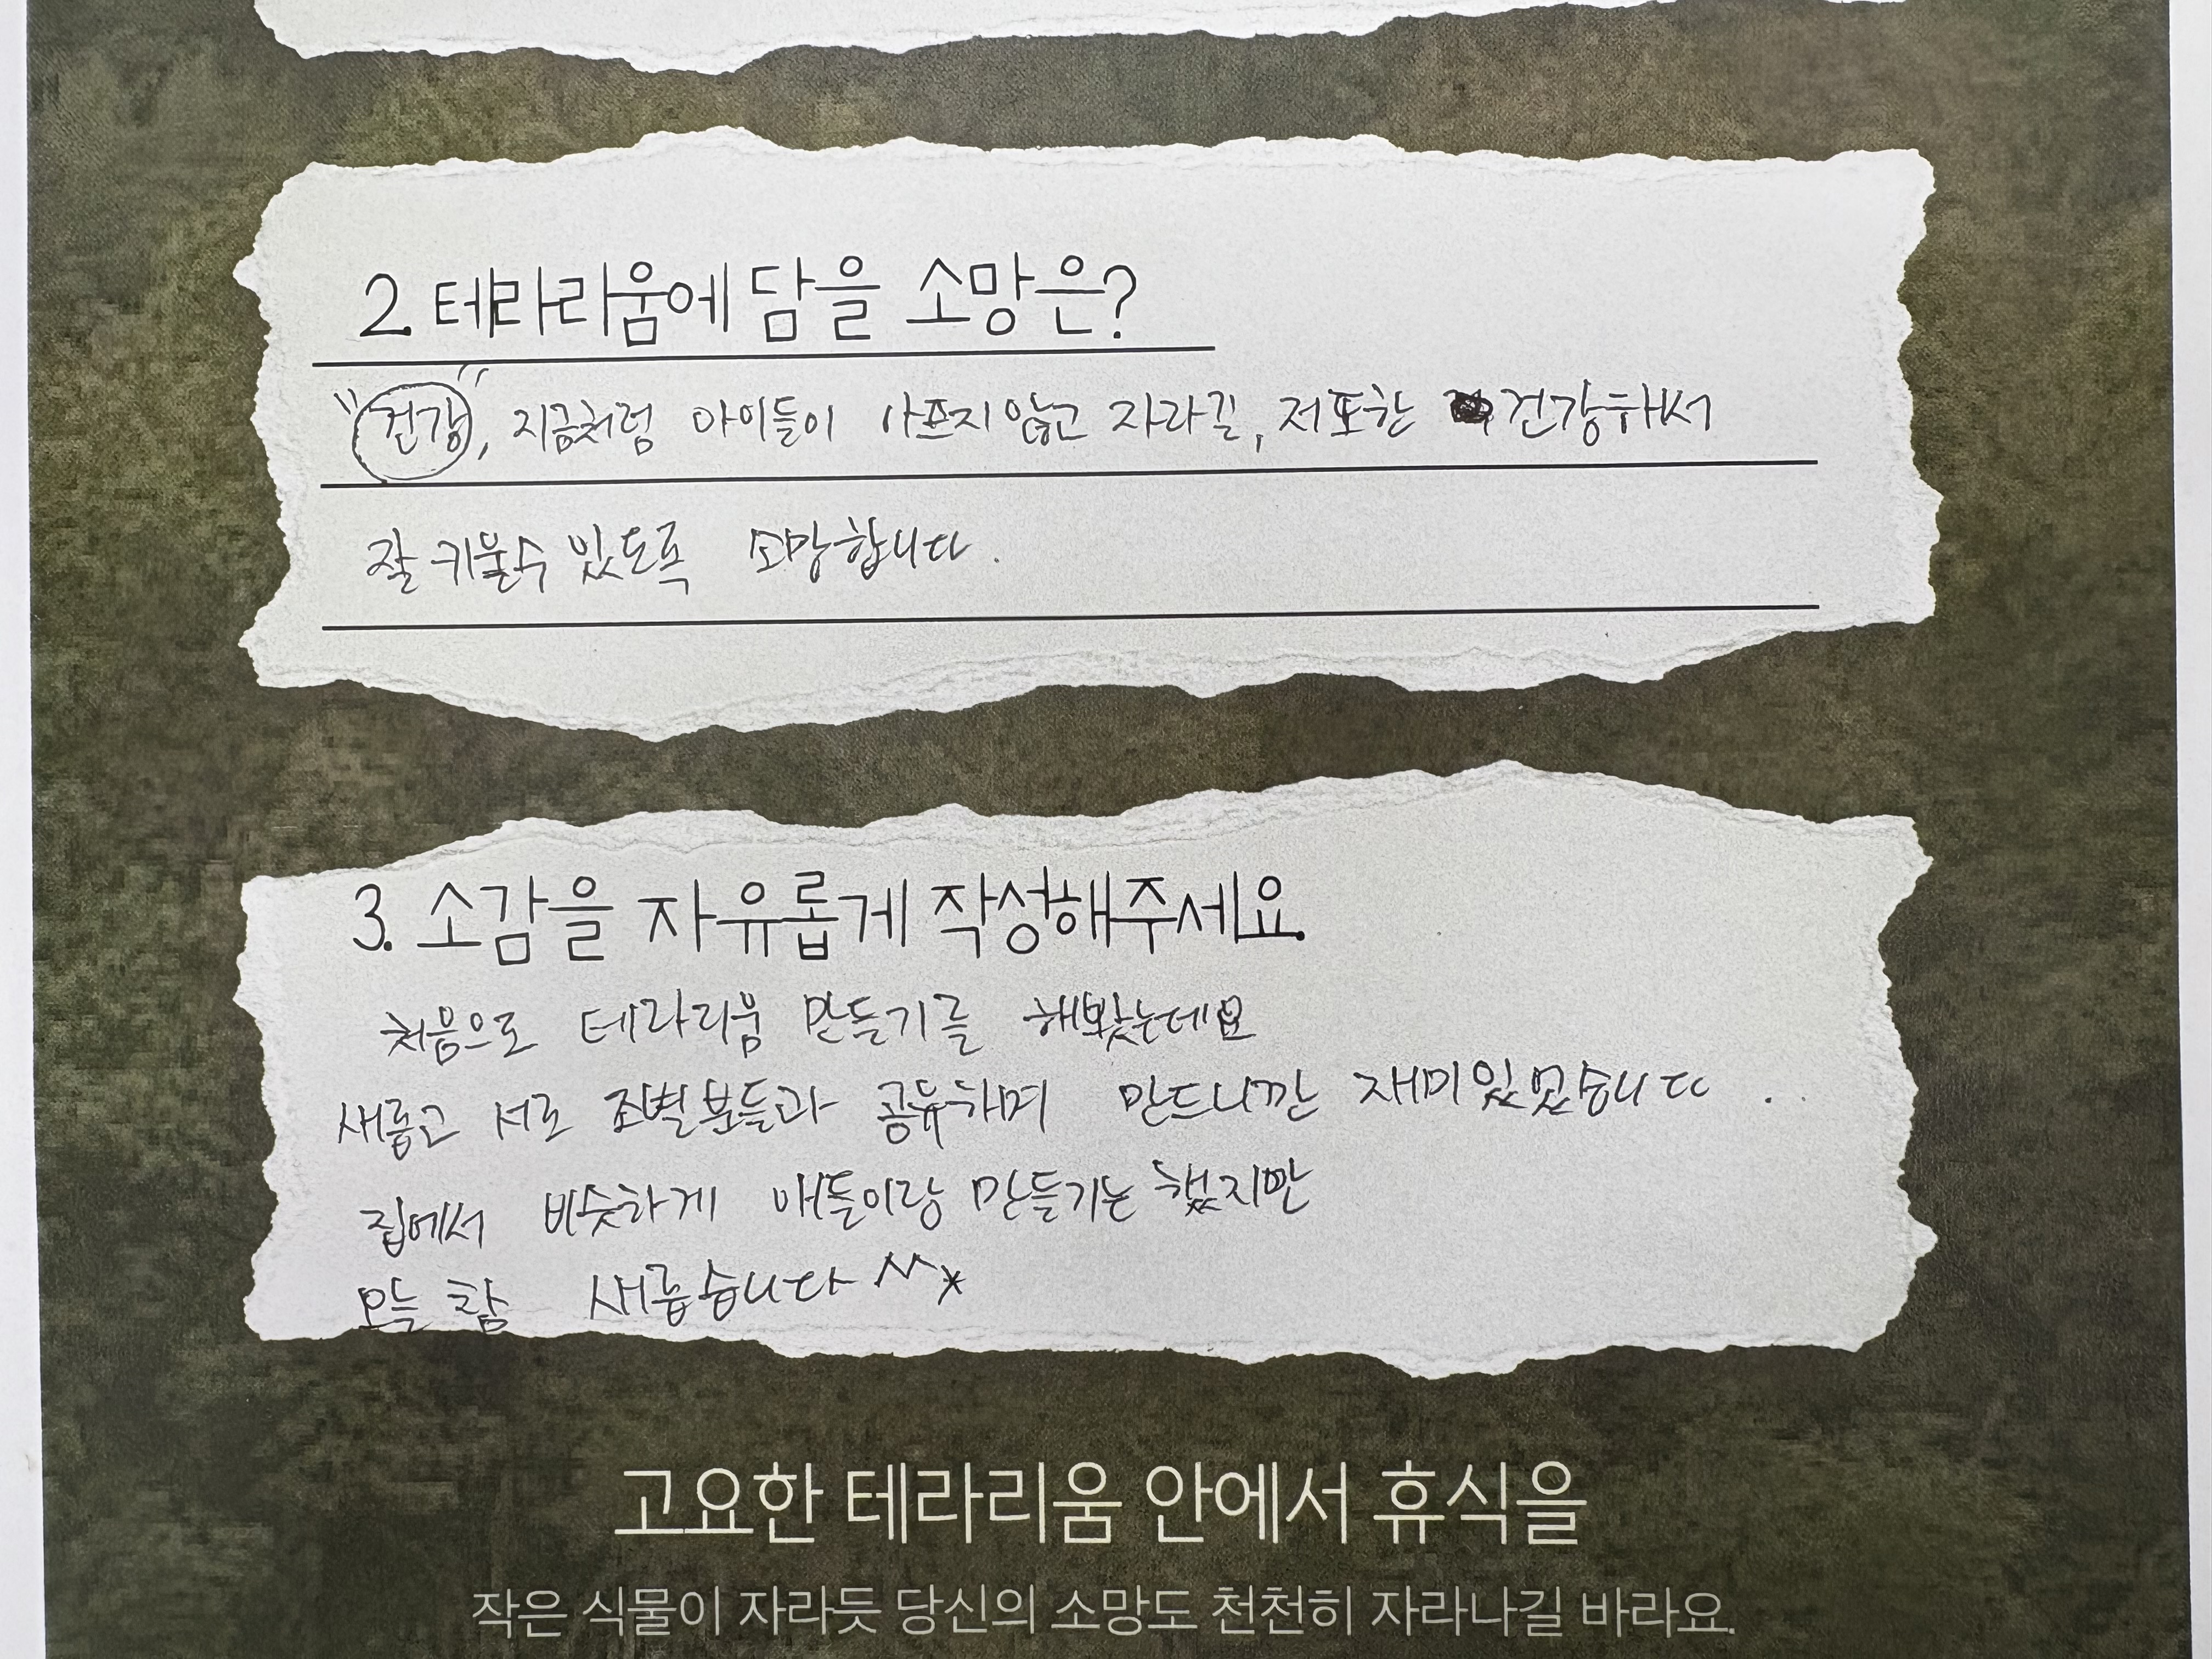 2. 테라리움에 담을 소망은?
"건강", 지금처럼 아이들이 아프지 않고 자라길, 저또한 건강해서
잘 키울수 있도록 소망합니다.
3. 소감을 자유롭게 작성해주세요.
처음으로 테라리움 만들기를 해봤는데요
새롭고 서로 조별분들과 공유하며 만드니깐 재미있었습니다..
집에서 비슷하게 애들이랑 만들기는 했지만
오늘 참 새롭습니다 ^^*
고요한 테라리움 안에서 휴식을
작은 식물이 자라듯 당신의 소망도 천천히 자라나길 바라요.